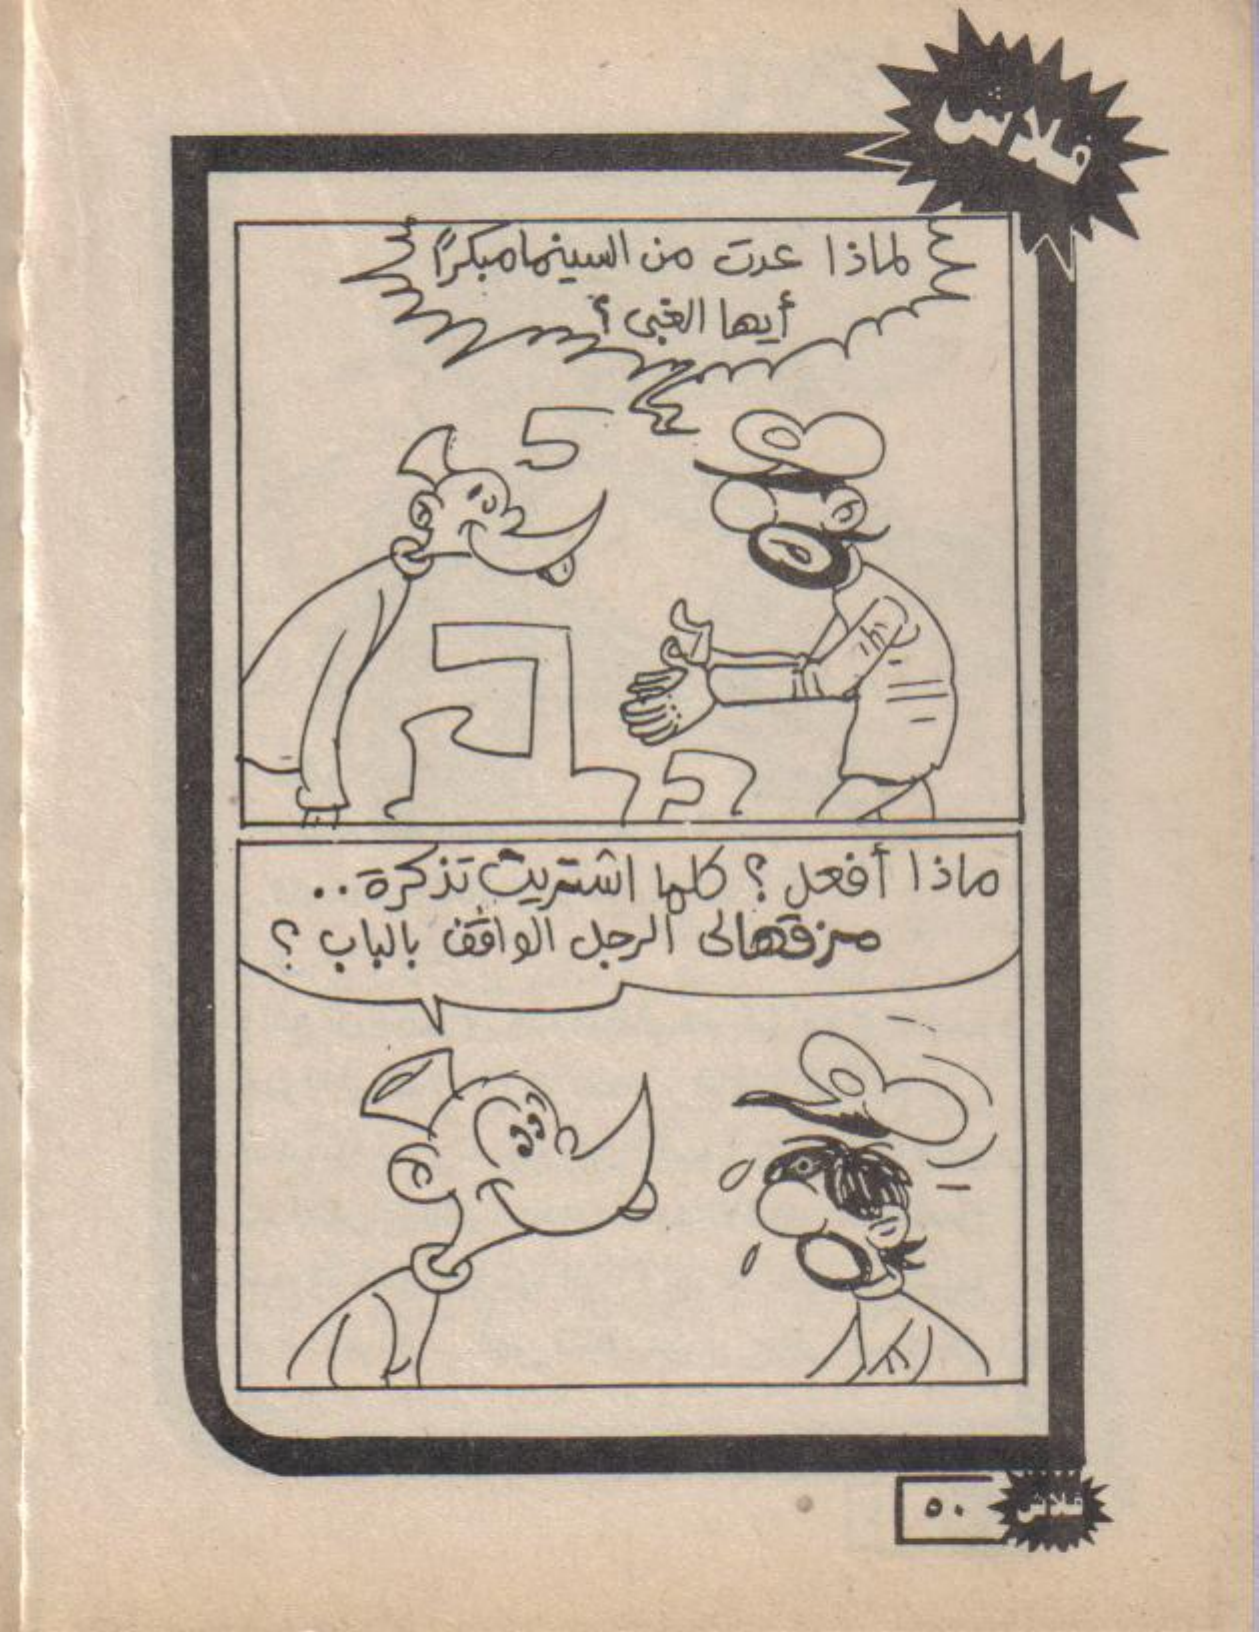 فلاش
لماذا عدت من السينما مبكرًا
أيها الغبى ؟
ماذا أفعل ؟ كلما اشتريت تذكرة ..
مزقها لى الرجل الواقف بالباب ؟
٥٠
فلاش